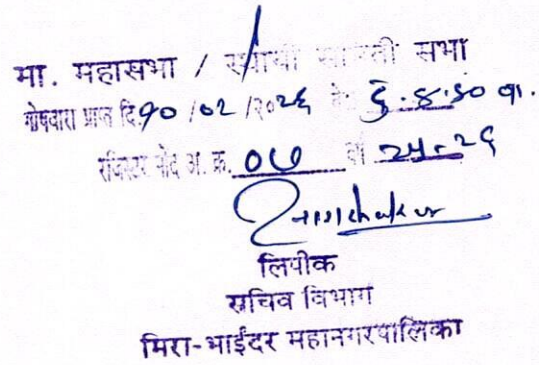 मा. महासभा / स्थायी समिती सभा
गोषवारा प्राप्त दि.१०/०२/२०२६ वेळ दु.४.५० वा.
रजिस्टर नोंद अ. क्र. ०७ वर्ष २५-२६
लिपीक
सचिव विभाग
मिरा-भाईंदर महानगरपालिका